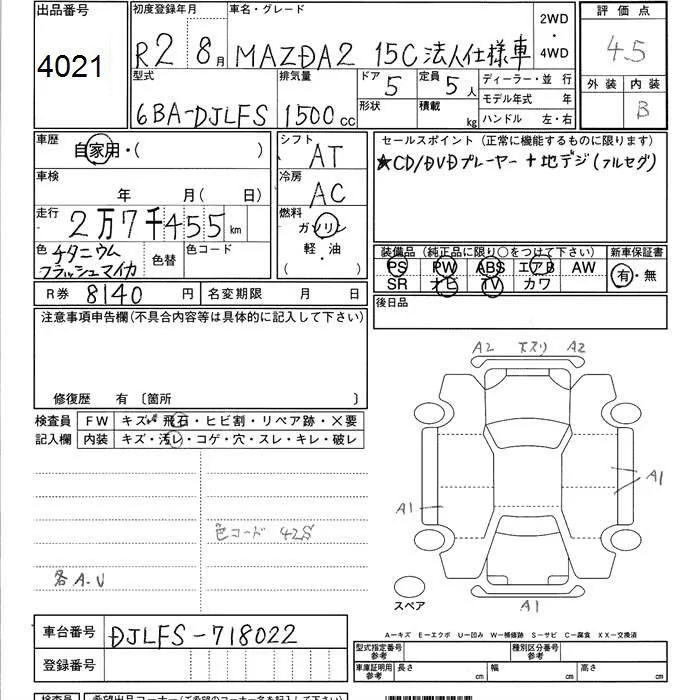 出品番号 初度登録年月 車名・グレード 2WD・4WD 評価点
4021 R2 8月 MAZDA2 15C 法人仕様車 4.5
型式 排気量 ドア 5 定員 5人 ディーラー・並 行 外装 内装
6BA-DJLFS 1500cc 形状 積載 kg モデル年式 年 B
ハンドル 左・右
車歴 自家用・( ) シフト AT セールスポイント (正常に機能するものに限ります)
★CD/DVDプレーヤー + 地デジ(フルセグ)
車検 年 月(日) 冷房 AC
走行 2万7千455km 燃料 ガソリン
軽・油
( ・ )
色 チタニウムフラッシュマイカ 色替 色コード
装備品 (純正品に限り○をつけて下さい) 新車保証書
PS PW ABS エアB AW 有・無
SR ナビ TV カワ
R券 8140円 名変期限 月 日 後日品
注意事項申告欄(不具合内容等は具体的に記入して下さい)
修復歴 有 〔箇所 〕
検査員 FW キズ 飛石・ヒビ割・リペア跡・×要
記入欄 内装 キズ・汚レ・コゲ・穴・スレ・キレ・破レ
A2 A2
A1
A1
色コード 42S
各A.U
スペア
A1
A-キズ E-エクボ U-凹み W-補修跡 S-サビ C-腐食 XX-交換済
車台番号 DJLFS-718022
型式指定番号 参考 種別区分番号 参考
登録番号
車庫証明用 参考 長さ cm 幅 cm 高さ cm
検査員 希望出品コーナー(ご希望のコーナー名を記入して下さい)